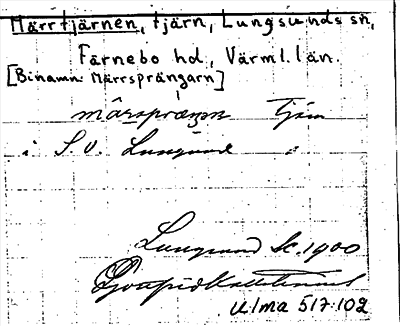 Märrtjärnen, tjärn, Lungsunds sn,
Färnebo hd, Värml. län.
[Binamn: Märrsprängarn]
Tjärn
i S.V. Lungsund
Lungsund Sc. 1900
Ulma 517:102